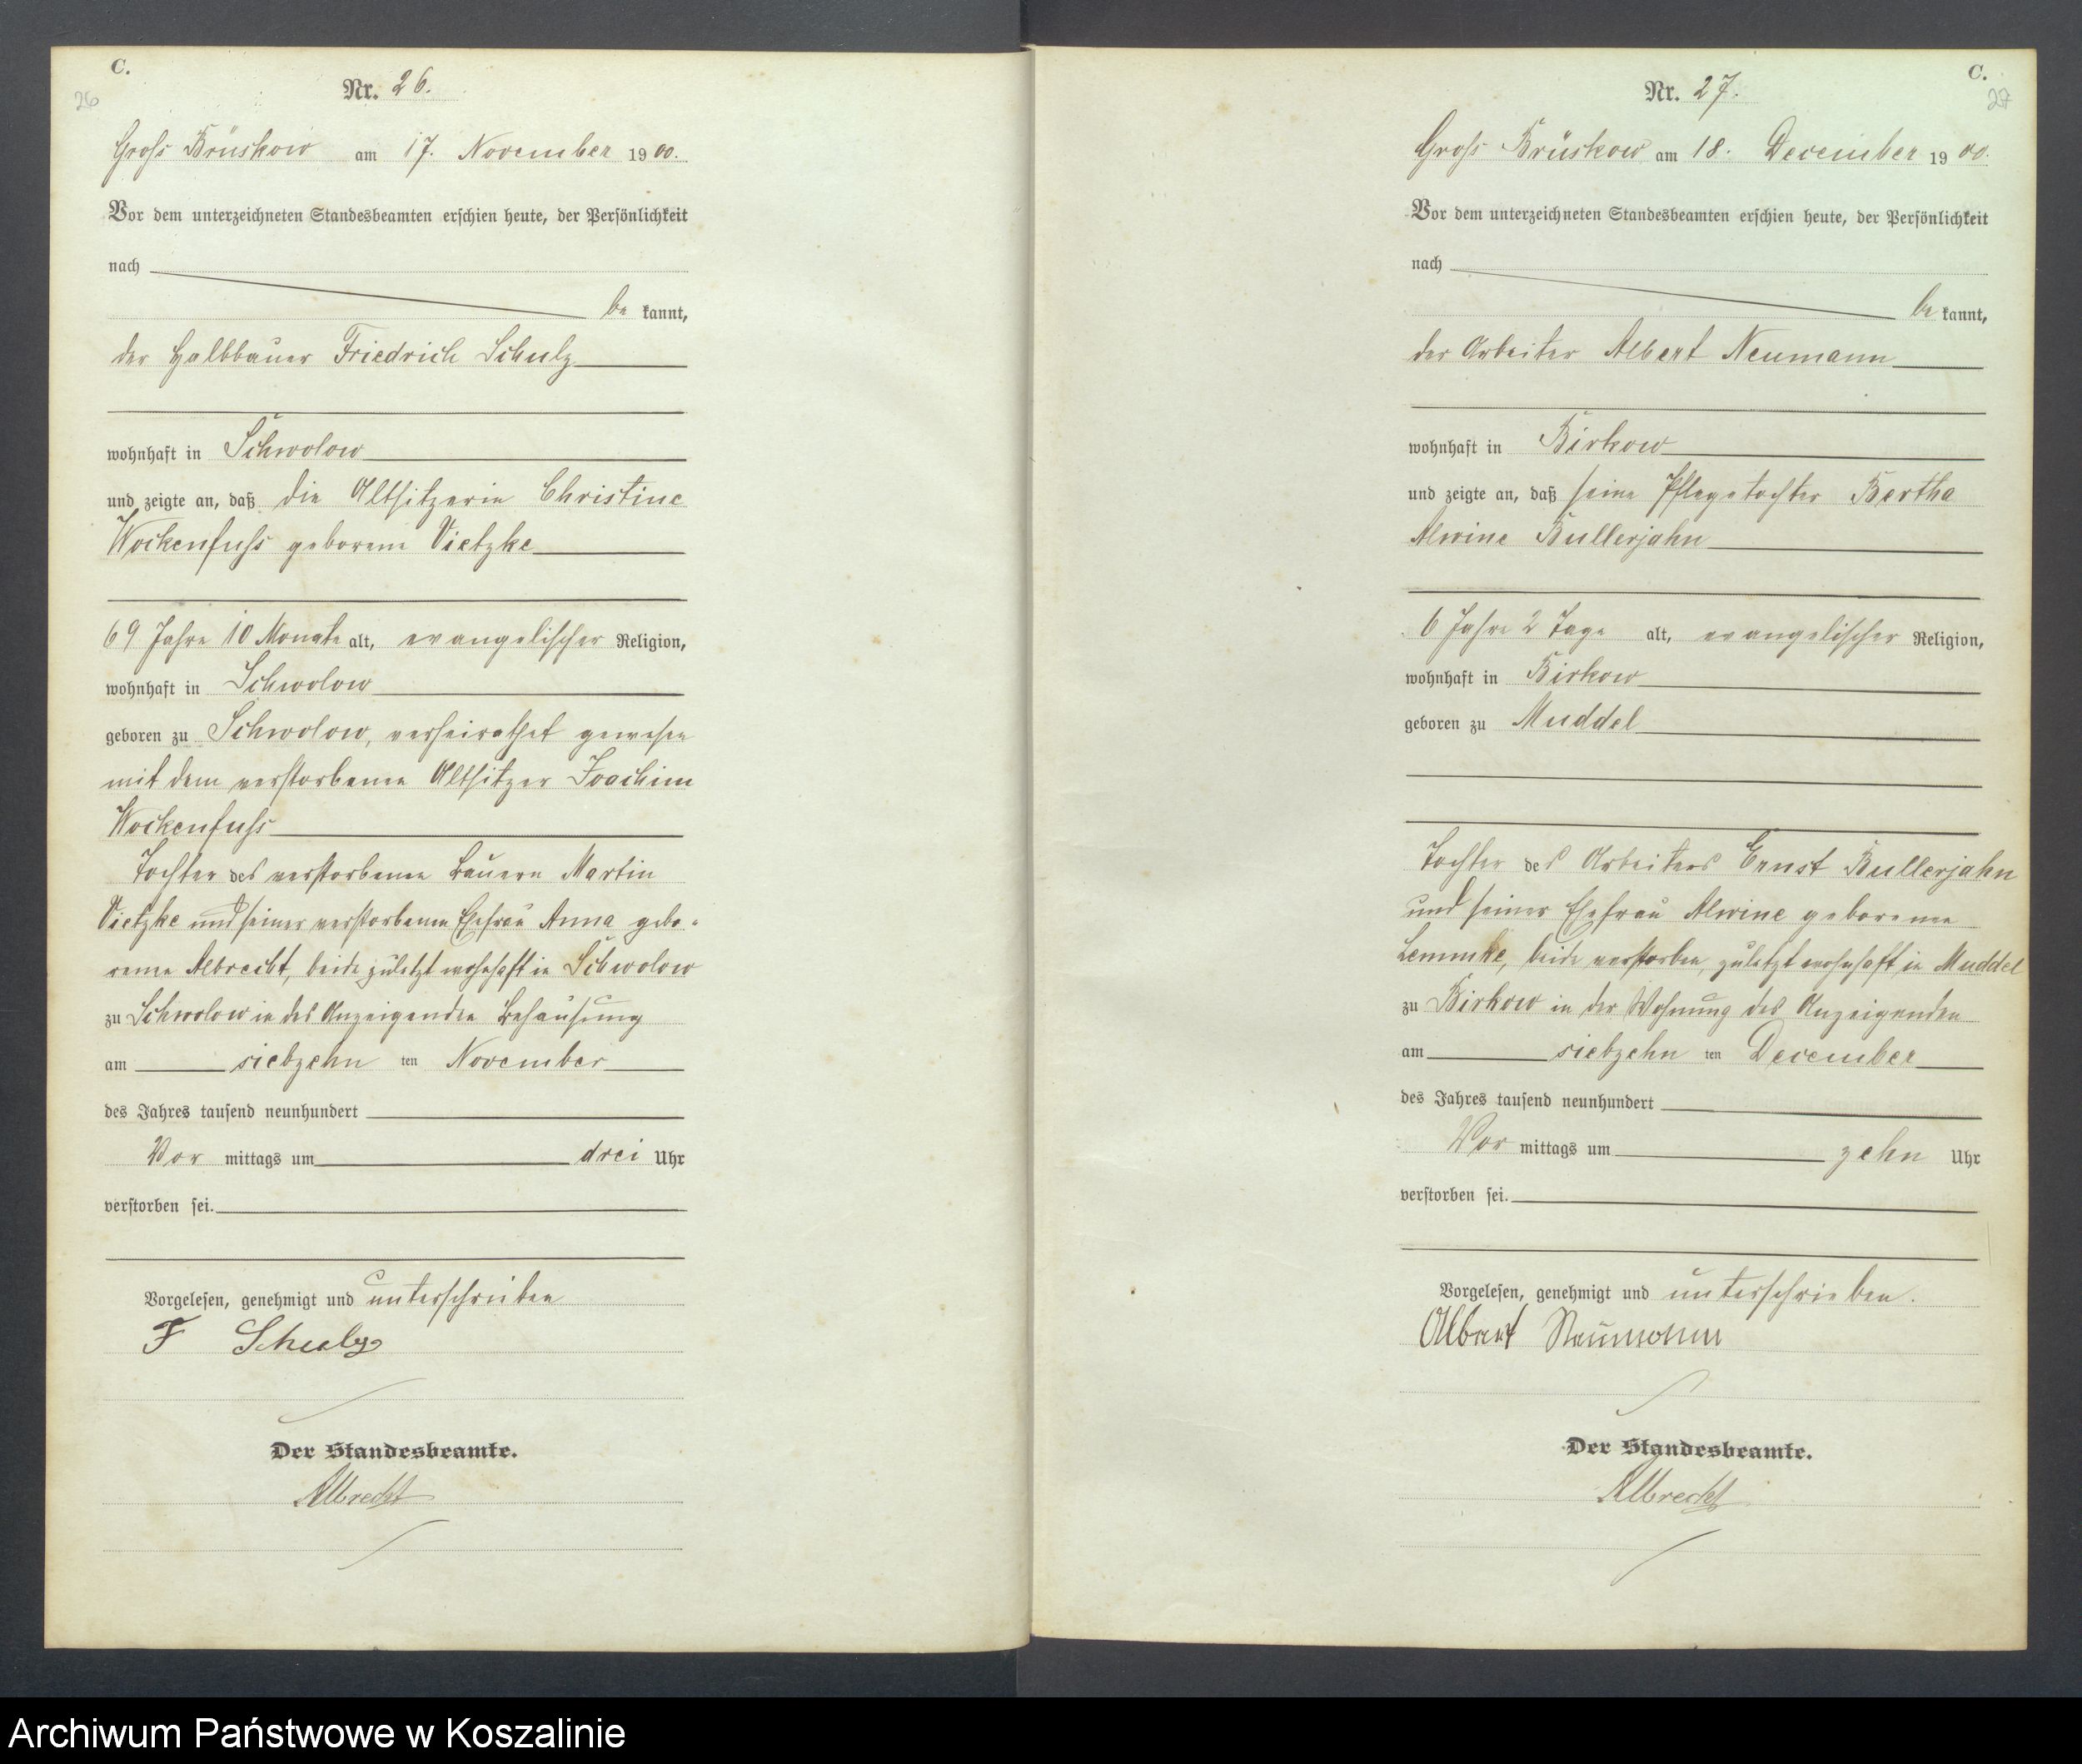 C.
26
Nr. 26.
Gross Brüskow am 17. November 1900.
Vor dem unterzeichneten Standesbeamten erschien heute, der Persönlichkeit
nach
be kannt,
der Halbbauer Friedrich Schulz
wohnhaft in Schwolow
und zeigte an, daß die Altsitzerin Christine
Wockenfuss geborene Vietzke
69 Jahre 10 Monate alt, evangelischer Religion,
wohnhaft in Schwolow
geboren zu Schwolow, verheirathet gewesen
mit dem verstorbenen Altsitzer Joachim
Wockenfuss
Tochter des verstorbenen Bauern Martin
Vietzke und seiner verstorbenen Ehefrau Anna gebo-
rene Albrecht, beide zuletzt wohnhaft in Schwolow
zu Schwolow in des Anzeigenden Behausung
am siebzehn ten November
des Jahres tausend neunhundert
Vor mittags um drei Uhr
verstorben sei.
Vorgelesen, genehmigt und unterschrieben
F Schulz
Der Standesbeamte.
Albrecht
C.
27
Nr. 27.
Gross Brüskow am 18. December 1900.
Vor dem unterzeichneten Standesbeamten erschien heute, der Persönlichkeit
nach
be kannt,
der Arbeiter Albert Neumann
wohnhaft in Birkow
und zeigte an, daß seine Pflegetochter Bertha
Alwine Bullerjahn
6 Jahre 2 Tage alt, evangelischer Religion,
wohnhaft in Birkow
geboren zu Muddel
Tochter des Arbeiters Ernst Bullerjahn
und seiner Ehefrau Alwine geborenen
Lemmke, beide verstorben, zuletzt wohnhaft in Muddel
zu Birkow in der Wohnung des Anzeigenden
am siebzehn ten December
des Jahres tausend neunhundert
Vor mittags um zehn Uhr
verstorben sei.
Vorgelesen, genehmigt und unterschrieben.
Albert Neumann
Der Standesbeamte.
Albrecht
Archiwum Państwowe w Koszalinie